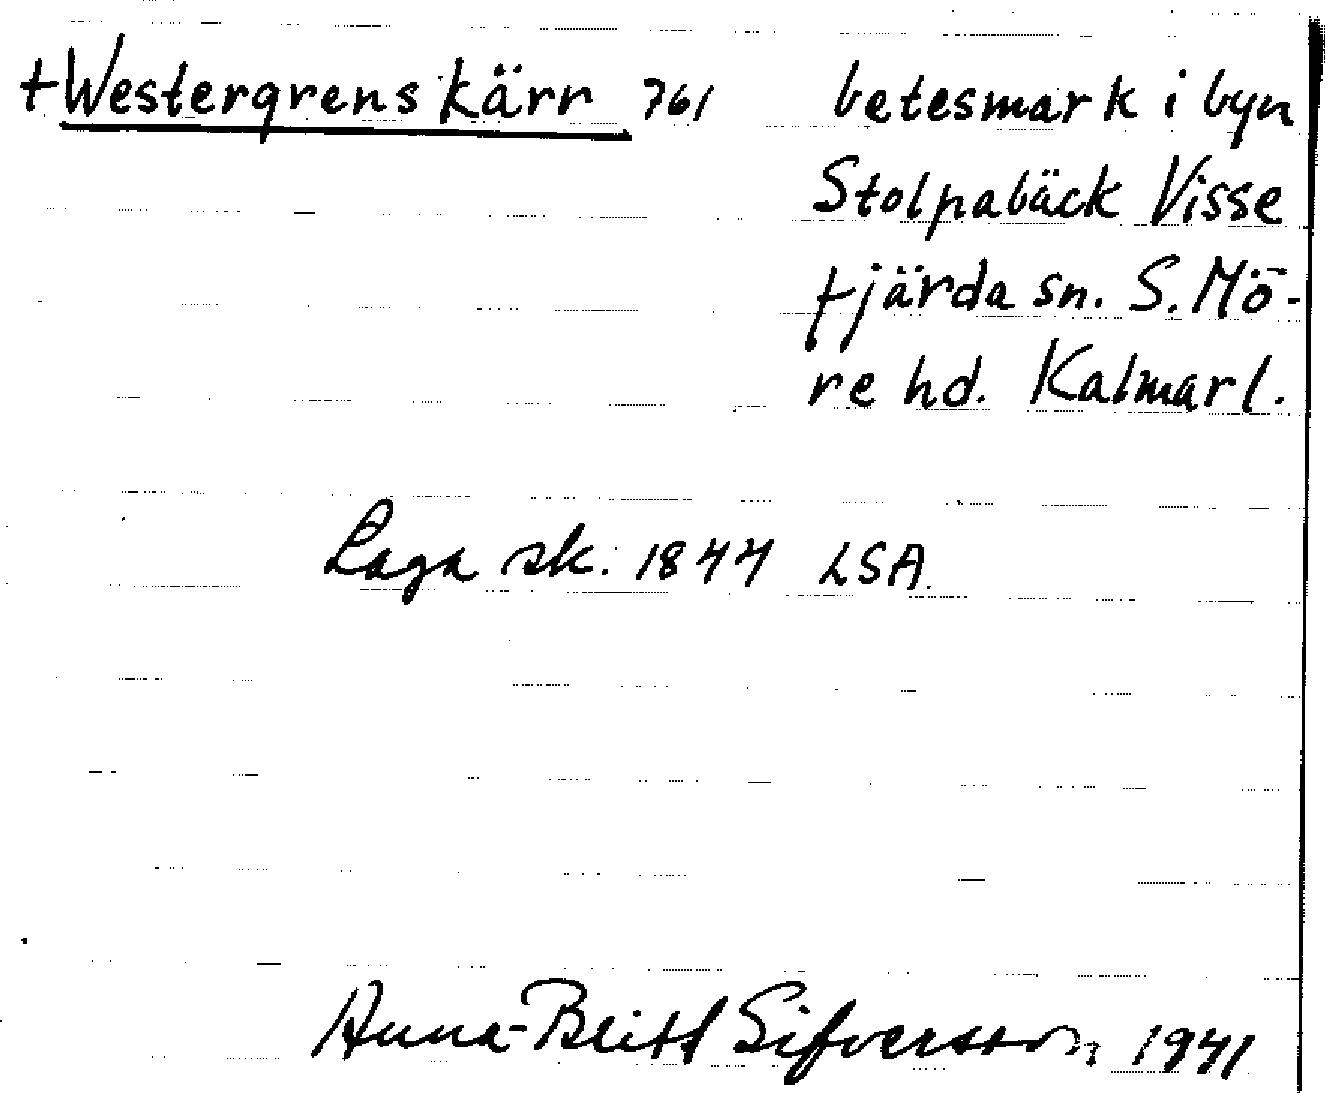 +Westergrens kärr 761 betesmark i byn
Stolpabäck Visse
fjärda sn. S. Mö-
re hd. Kalmarl.
Laga sk. 1844 LSA.
Anna-Britt Sifversson 1941